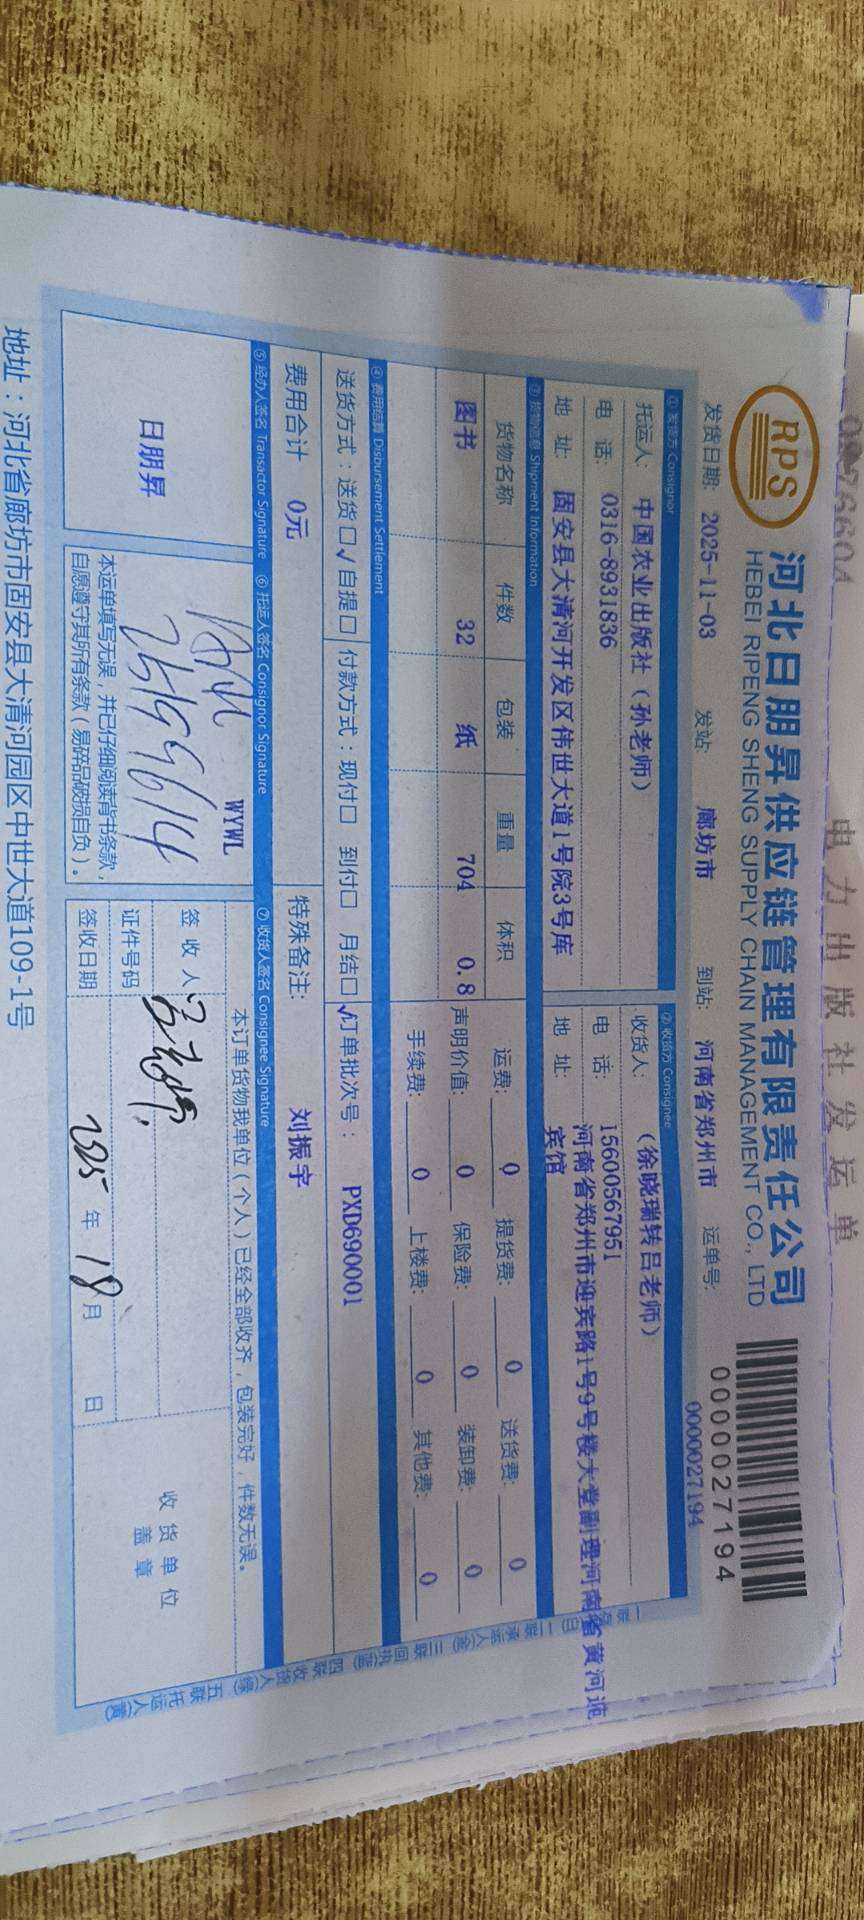 电力出版社发运单
RPS
河北日朋昇供应链管理有限责任公司
HEBEI RIPENG SHENG SUPPLY CHAIN MANAGEMENT CO., LTD
0000027194
发货日期: 2025-11-03 发站: 廊坊市 到站: 河南省郑州市 运单号: 0000027194
① 发货方 Consignor ② 收货方 Consignee
托运人: 中国农业出版社（孙老师） 收货人: （徐晓瑞转吕老师）
电 话: 0316-8931836 电 话: 15600567951
地 址: 固安县大清河开发区伟世大道1号院3号库 地 址: 河南省郑州市迎宾路1号9号楼大堂副理河南省黄河迎
宾馆
③ 货物信息 Shipment Information
货物名称 件数 包装 重量 体积 运费: 0 提货费: 0 送货费: 0
图书 32 纸 704 0.8 声明价值: 0 保险费: 0 装卸费: 0
手续费: 0 上楼费: 0 其他费: 0
④ 费用结算 Disbursement Settlement
送货方式：送货☐√自提☐ 付款方式：现付☐ 到付☐ 月结☐√ 订单批次号： PXD690001
费用合计 0元 特殊备注: 刘振宇
⑤ 经办人签名 Transactor Signature ⑥ 托运人签名 Consignor Signature ⑦ 收货人签名 Consignee Signature
日朋昇
WYWL
本运单填写无误，并已仔细阅读背书条款，
自愿遵守其所有条款（易碎品破损自负）。
本订单货物我单位（个人）已经全部收齐，包装完好，件数无误。
签 收 人
证件号码
签收日期 2025 年 月 日
收货单位
盖章
二联 承运人(金) 三联 回执(蓝) 四联 收货人(绿) 五联 托运人(黄)
地址：河北省廊坊市固安县大清河园区中世大道109-1号